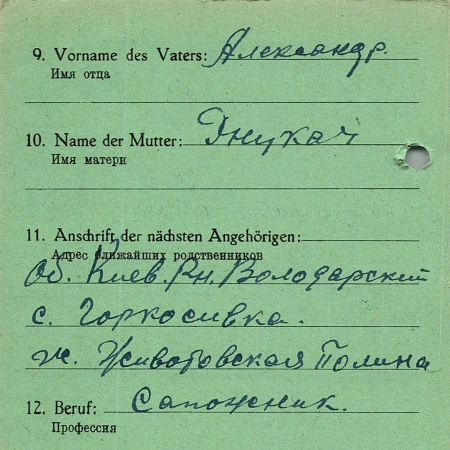 9. Vorname des Vaters: Александр.
Имя отца
10. Name der Mutter:
Имя матери
11. Anschrift der nächsten Angehörigen:
Адрес ближайших родственников
Об. Киев. Рн. Володарский
с. Горкосивка.
ж. Животовская Полина
12. Beruf: Сапожник.
Профессия